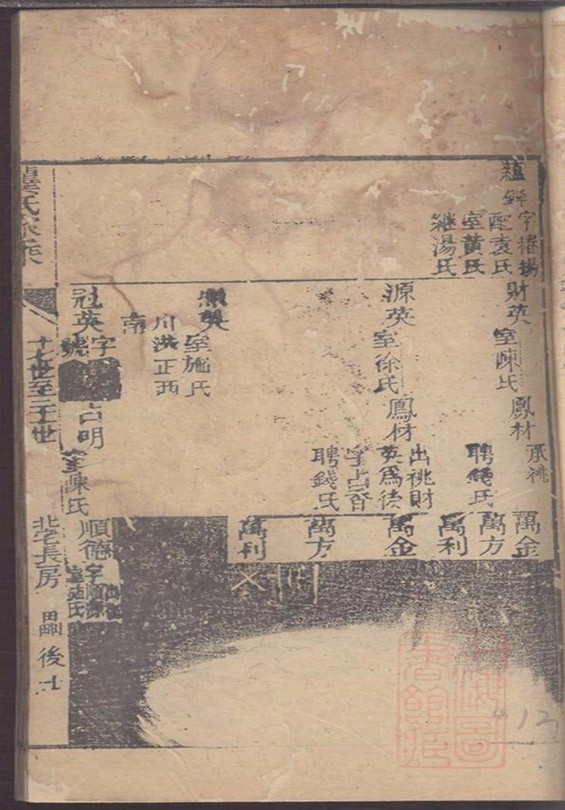 字椿楊
配袁氏
室黃氏
継湯氏
財英
室陳氏
鳳材
承祧
聘錢氏
萬金
萬方
萬利
源英
室徐氏
鳳材
出祧財
英爲後
字占春
聘錢氏
萬金
萬方
萬利
室施氏
川洪正西
南
冠英
字占明
號
室陳氏
順德
字順源
室施氏
龔氏家乘
十七世至二十世
北宅長房
後十